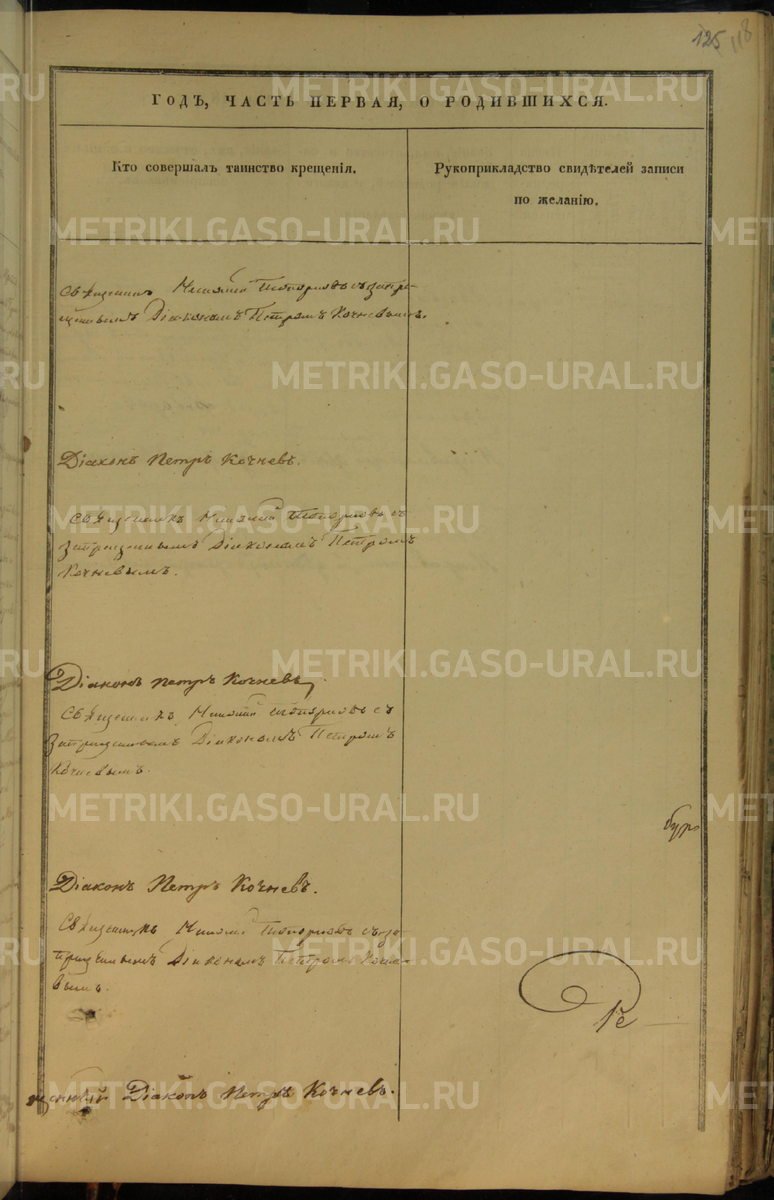 125 118
ГОДЪ, ЧАСТЬ ПЕРВАЯ, О РОДИВШИХСЯ.
Кто совершалъ таинство крещенія.
Рукоприкладство свидѣтелей записи
по желанію.
Священникъ Топорковъ съ запре-
щеннымъ Діакономъ Петромъ Кочневымъ.
Діаконъ Петръ Кочневъ.
Священникъ Топорковъ съ
запрещеннымъ Діакономъ Петромъ
Кочневымъ.
Діаконъ Петръ Кочневъ,
Священникъ Топорковъ съ
запрещеннымъ Діакономъ Петромъ
Кочневымъ.
Діаконъ Петръ Кочневъ.
Священникъ Топорковъ съ за-
прещеннымъ Діакономъ Петромъ Кочне-
вымъ.
Діаконъ Петръ Кочневъ.
METRIKI.GASO-URAL.RU